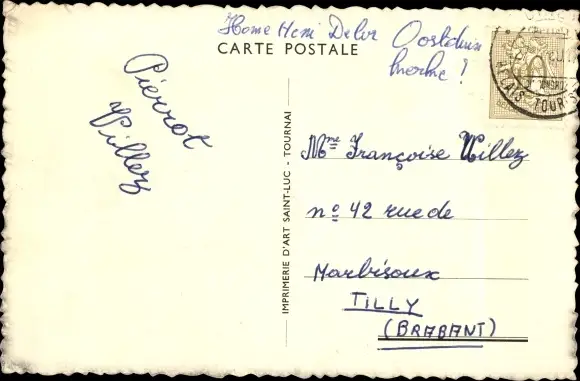 Home Heni Delor Oostduin
CARTE POSTALE
!
Pierrot
Villez
IMPRIMERIE D'ART SAINT-LUC - TOURNAI
Mme Françoise Villez
no 42 rue de
Marbisoux
TILLY
(BRABANT)
RELAIS TOUR